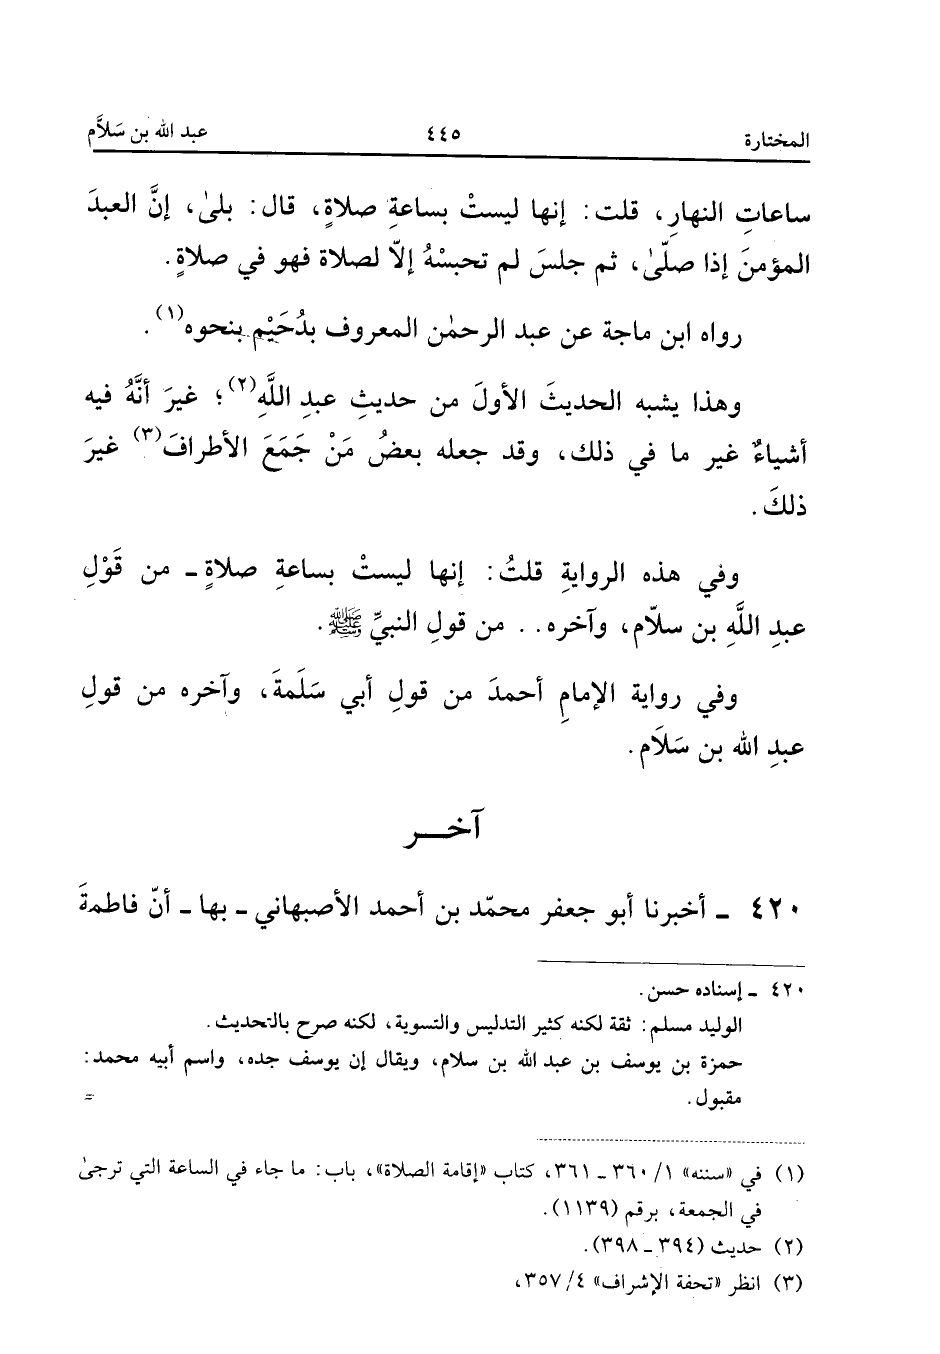 المختارة ٤٤٥ عبد الله بن سَلاَّم
ساعاتِ النهارِ، قلت: إنها ليستْ بساعةِ صلاةٍ، قال: بلىٰ، إنَّ العبدَ
المؤمنَ إذا صلّىٰ، ثم جلسَ لم تحبسْهُ إلاّ لصلاة فهو في صلاةٍ.
رواه ابن ماجة عن عبد الرحمٰن المعروف بدُحَيْم بنحوه(١).
وهذا يشبه الحديثَ الأولَ من حديثِ عبدِ اللَّهِ(٢)؛ غيرَ أنَّهُ فيه
أشياءٌ غير ما في ذلك، وقد جعله بعضُ مَنْ جَمَعَ الأطرافَ(٣) غيرَ
ذلكَ.
وفي هذه الروايةِ قلتُ: إنها ليستْ بساعةِ صلاةٍ ـ من قَوْلِ
عبدِ اللَّهِ بن سلاّم، وآخره.. من قولِ النبيِّ ﷺ.
وفي رواية الإمامِ أحمدَ من قولِ أبي سَلَمةَ، وآخره من قولِ
عبدِ الله بن سَلَام.
آخـــر
٤٢٠ ـ أخبرنا أبو جعفر محمّد بن أحمد الأصبهاني ـ بها ـ أنّ فاطمةَ
٤٢٠ ـ إسناده حسن.
الوليد مسلم: ثقة لكنه كثير التدليس والتسوية، لكنه صرح بالتحديث.
حمزة بن يوسف بن عبد الله بن سلام، ويقال إن يوسف جده، واسم أبيه محمد:
مقبول. =
(١) في «سننه» ١/ ٣٦٠ ـ ٣٦١، كتاب «إقامة الصلاة»، باب: ما جاء في الساعة التي ترجىٰ
في الجمعة، برقم (١١٣٩).
(٢) حديث (٣٩٤ ـ ٣٩٨).
(٣) انظر «تحفة الإشراف» ٤/ ٣٥٧،